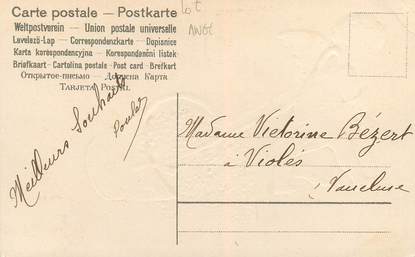 Carte postale – Postkarte
Weltpostverein – Union postale universelle
Levelező-Lap – Correspondenzkarte – Dopisnice
Karta korespondencyjna – Korespondenční listek
Briefkaart – Cartolina postale – Post card – Brefkort
Открытое-письмо – Дописна Карта
Tarjeta Postal
Lot
Meilleurs Souhaits
Madame Victorine Bézert
à Violès
Vaucluse